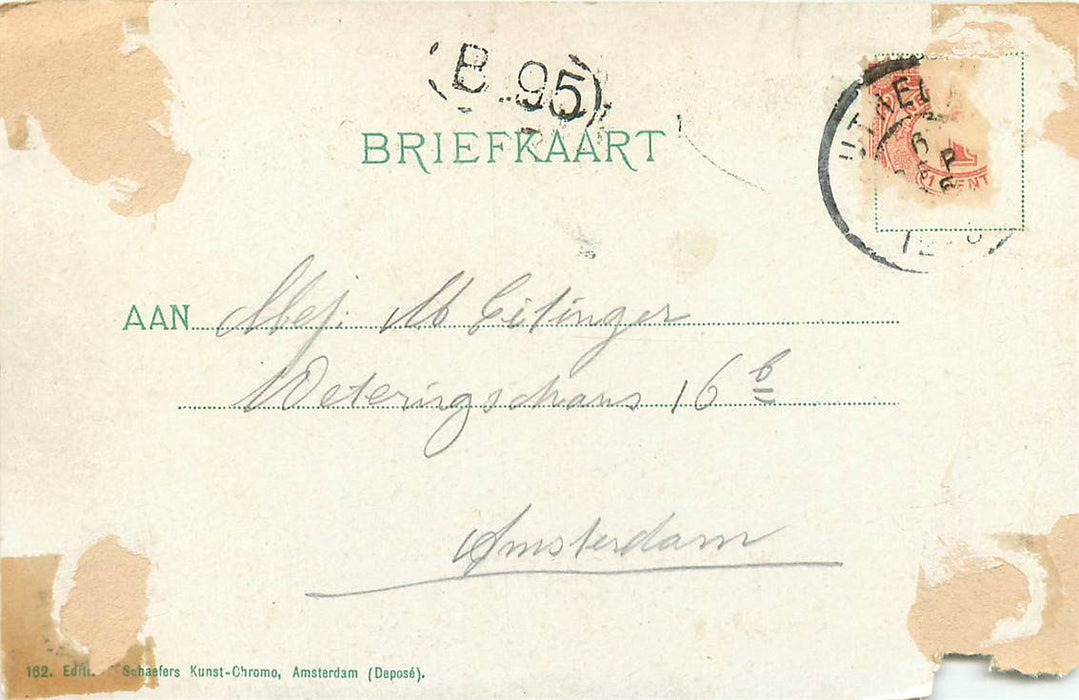 B 95
BRIEFKAART
1 CENT
AAN Mej. M Citinger
Weteringschans 16 b
Amsterdam
162. Schaefers Kunst-Chromo, Amsterdam (Deposé).